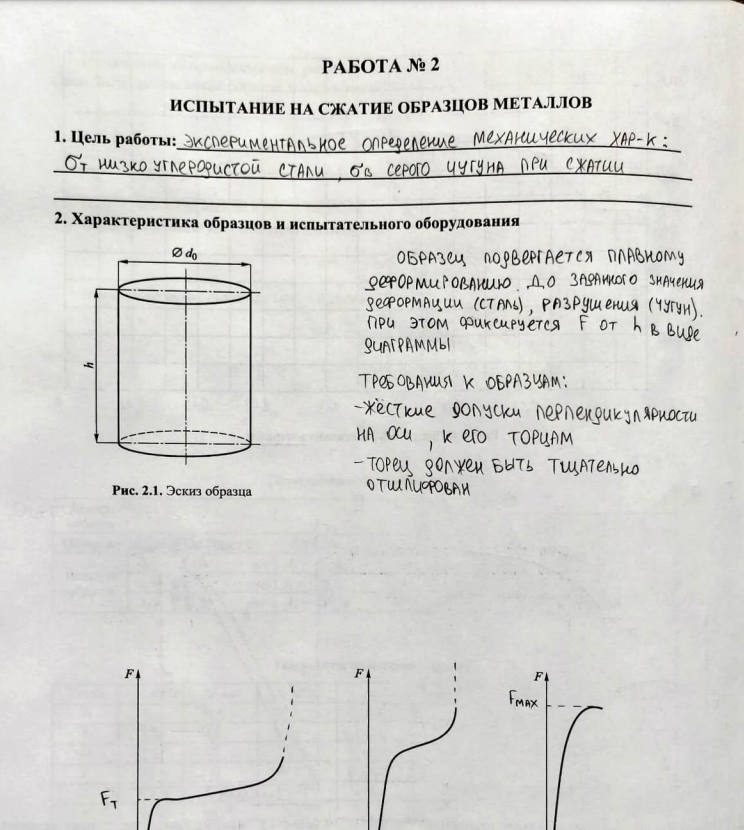 РАБОТА № 2
ИСПЫТАНИЕ НА СЖАТИЕ ОБРАЗЦОВ МЕТАЛЛОВ
1. Цель работы: экспериментальное определение механических хар-к:
σт низкоуглеродистой стали, σв серого чугуна при сжатии
2. Характеристика образцов и испытательного оборудования
Ø d₀
h
Рис. 2.1. Эскиз образца
ОБРАЗЕЦ подвергается плавному
деформированию до заданного значения
деформации (сталь), разрушения (чугун).
При этом фиксируется F от h в виде
диаграммы
Требования к образцам:
-жёсткие допуски перпендикулярности
на оси, к его торцам
-торец должен быть тщательно
отшлифован
F
F
F
Fмах
Fт